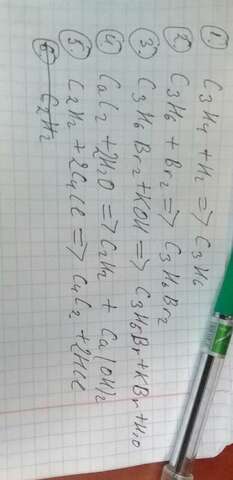 1) C3H4 + H2 => C3H6
2) C3H6 + Br2 => C3H6Br2
3. C3H6Br2 + KOH => C3H6Br + KBr + H2O
4 CaC2 + 2H2O => C2H2 + Ca(OH)2
5. C2H2 + 2CuCl => CuC2 + 2HCl
6 C2H2